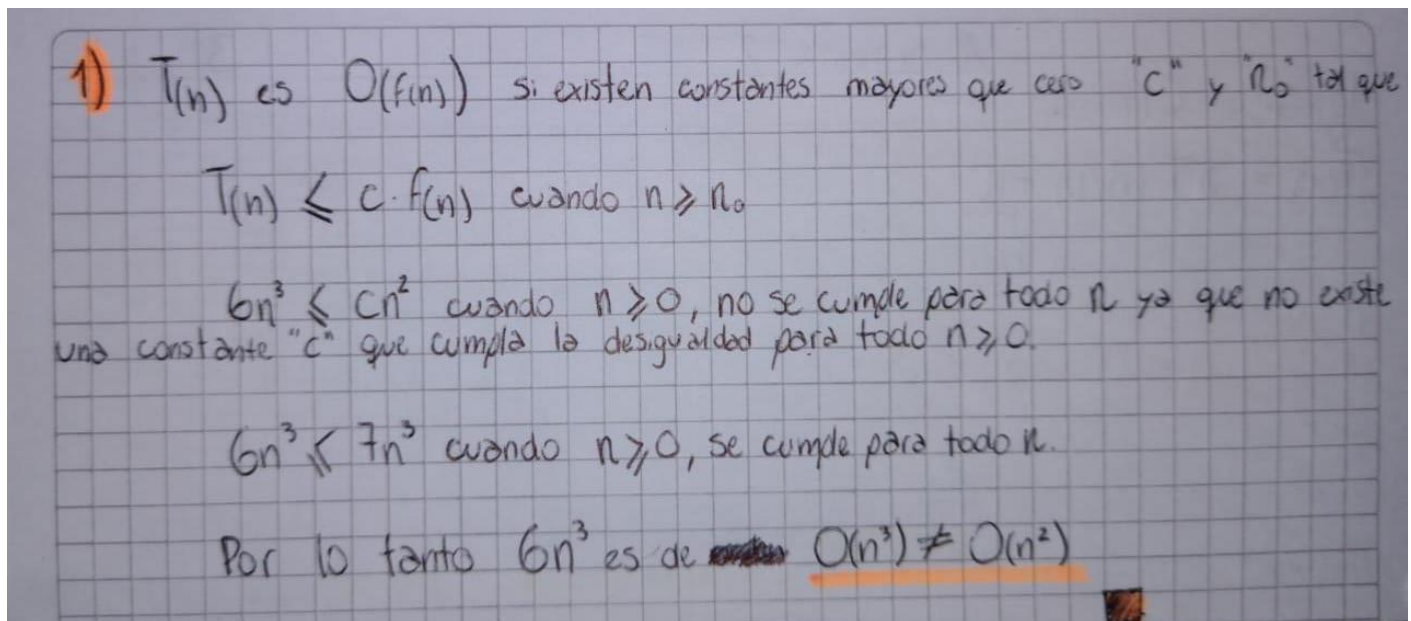 1) T(n) es O(f(n)) si existen constantes mayores que cero "c" y "n₀" tal que
T(n) ≤ c · f(n) cuando n ≥ n₀
6n³ ≤ cn² cuando n ≥ 0, no se cumple para todo n ya que no existe
una constante "c" que cumpla la desigualdad para todo n ≥ 0.
6n³ ≤ 7n³ cuando n ≥ 0, se cumple para todo n.
Por lo tanto 6n³ es de O(n³) ≠ O(n²)